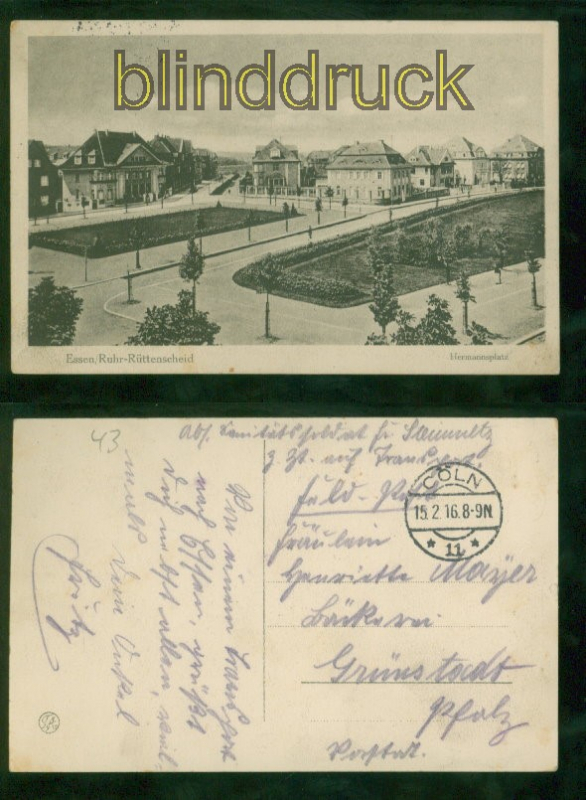 blinddruck
Essen/Ruhr-Rüttenscheid
Hermannsplatz
43
Abs. Sanitätssoldat Fr. Steinmetz
z. Zt. auf Transport
Feld-Post
CÖLN
15.2.16.8-9N.
* 11 *
Fräulein
Henriette Mayer
Bäckerei
Grünstadt
Pfalz
Von einem Transport
nach Essen, grüßt
Dich nebst allen,
Dein Onkel
Fritz